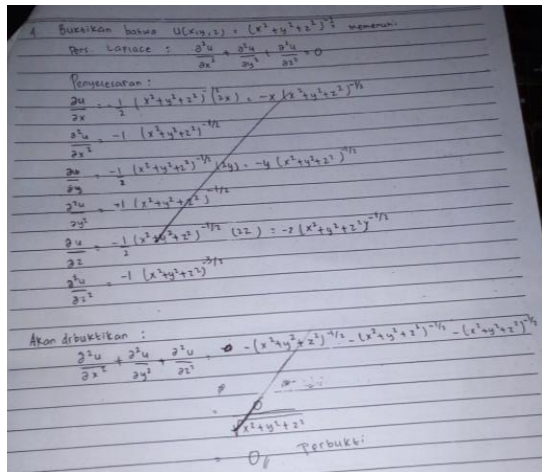 1. Buktikan bahwa U(x,y,z) = (x²+y²+z²)^-½ memenuhi
Pers. Laplace : ∂²u/∂x² + ∂²u/∂y² + ∂²u/∂z² = 0
Penyelesaian :
∂u/∂x = -1/2 (x²+y²+z²) (2x) = -x (x²+y²+z²)^-1/2
∂²u/∂x² = -1 (x²+y²+z²)^-1/2
∂u/∂y = -1/2 (x²+y²+z²)^-1/2 (2y) = -y (x²+y²+z²)^-1/2
∂²u/∂y² = -1 (x²+y²+z²)^-1/2
∂u/∂z = -1/2 (x²+y²+z²)^-1/2 (2z) = -z (x²+y²+z²)^-1/2
∂²u/∂z² = -1 (x²+y²+z²)^-3/2
Akan dibuktikan :
∂²u/∂x² + ∂²u/∂y² + ∂²u/∂z² = -(x²+y²+z²)^-1/2 - (x²+y²+z²)^-1/2 - (x²+y²+z²)^-1/2
= 0/√x²+y²+z²
= 0, Terbukti